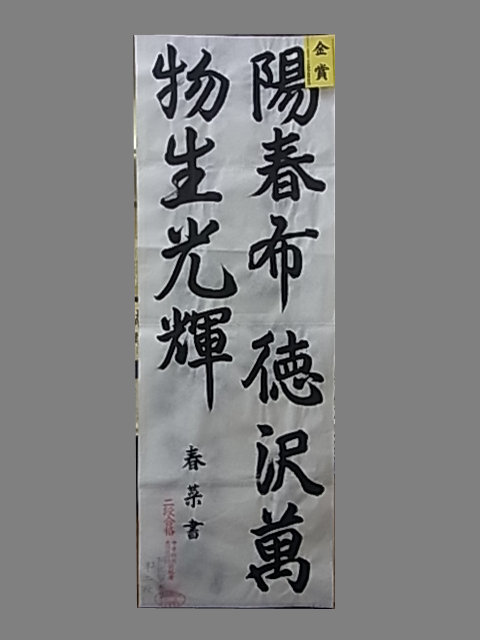 金賞
陽春布徳沢萬
物生光輝
春菜書
二段合格